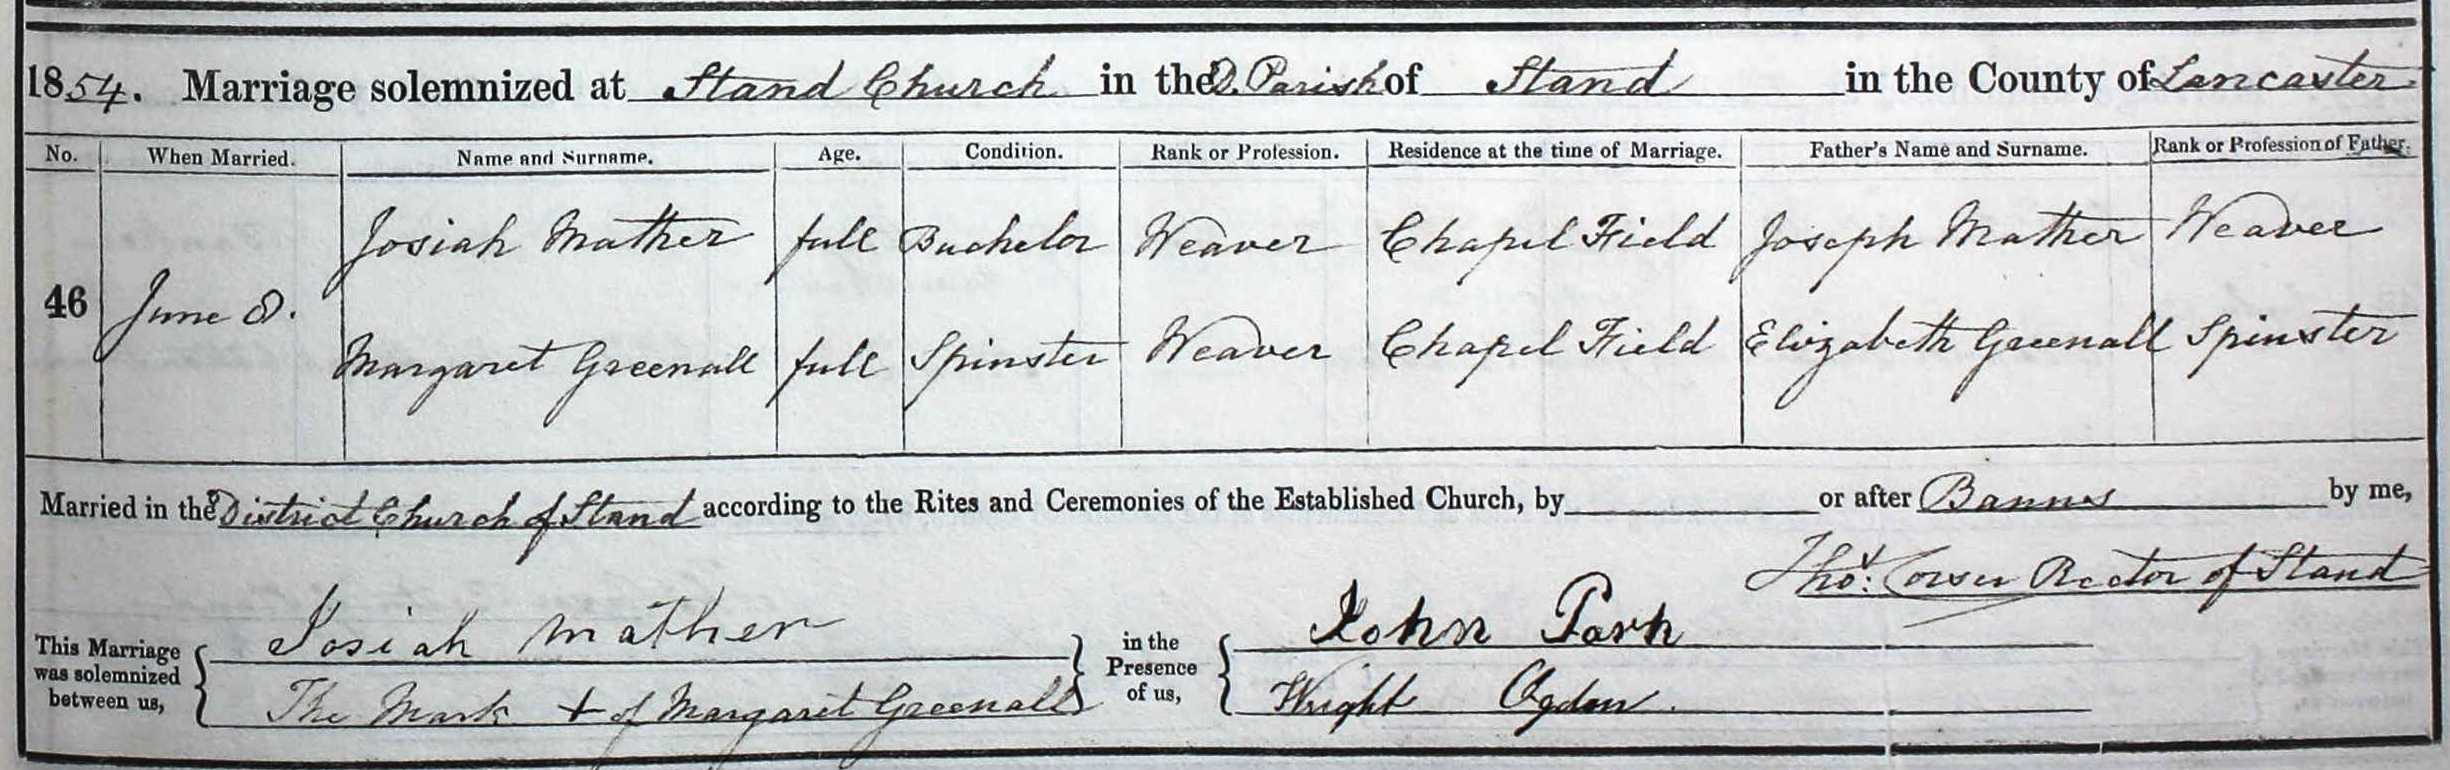 1854. Marriage solemnized at Stand Church in the D. Parish of Stand in the County of Lancaster
No. When Married. Name and Surname. Age. Condition. Rank or Profession. Residence at the time of Marriage. Father's Name and Surname. Rank or Profession of Father.
Josiah Mather full Bachelor Weaver Chapel Field Joseph Mather Weaver
46 June 8.
Margaret Greenall full Spinster Weaver Chapel Field Elizabeth Greenall Spinster
Married in the District Church of Stand according to the Rites and Ceremonies of the Established Church, by or after Banns by me,
Thos: Corser Rector of Stand
This Marriage was solemnized between us, Josiah Mather in the Presence of us, John Park
The Mark + of Margaret Greenall Wright Ogden.